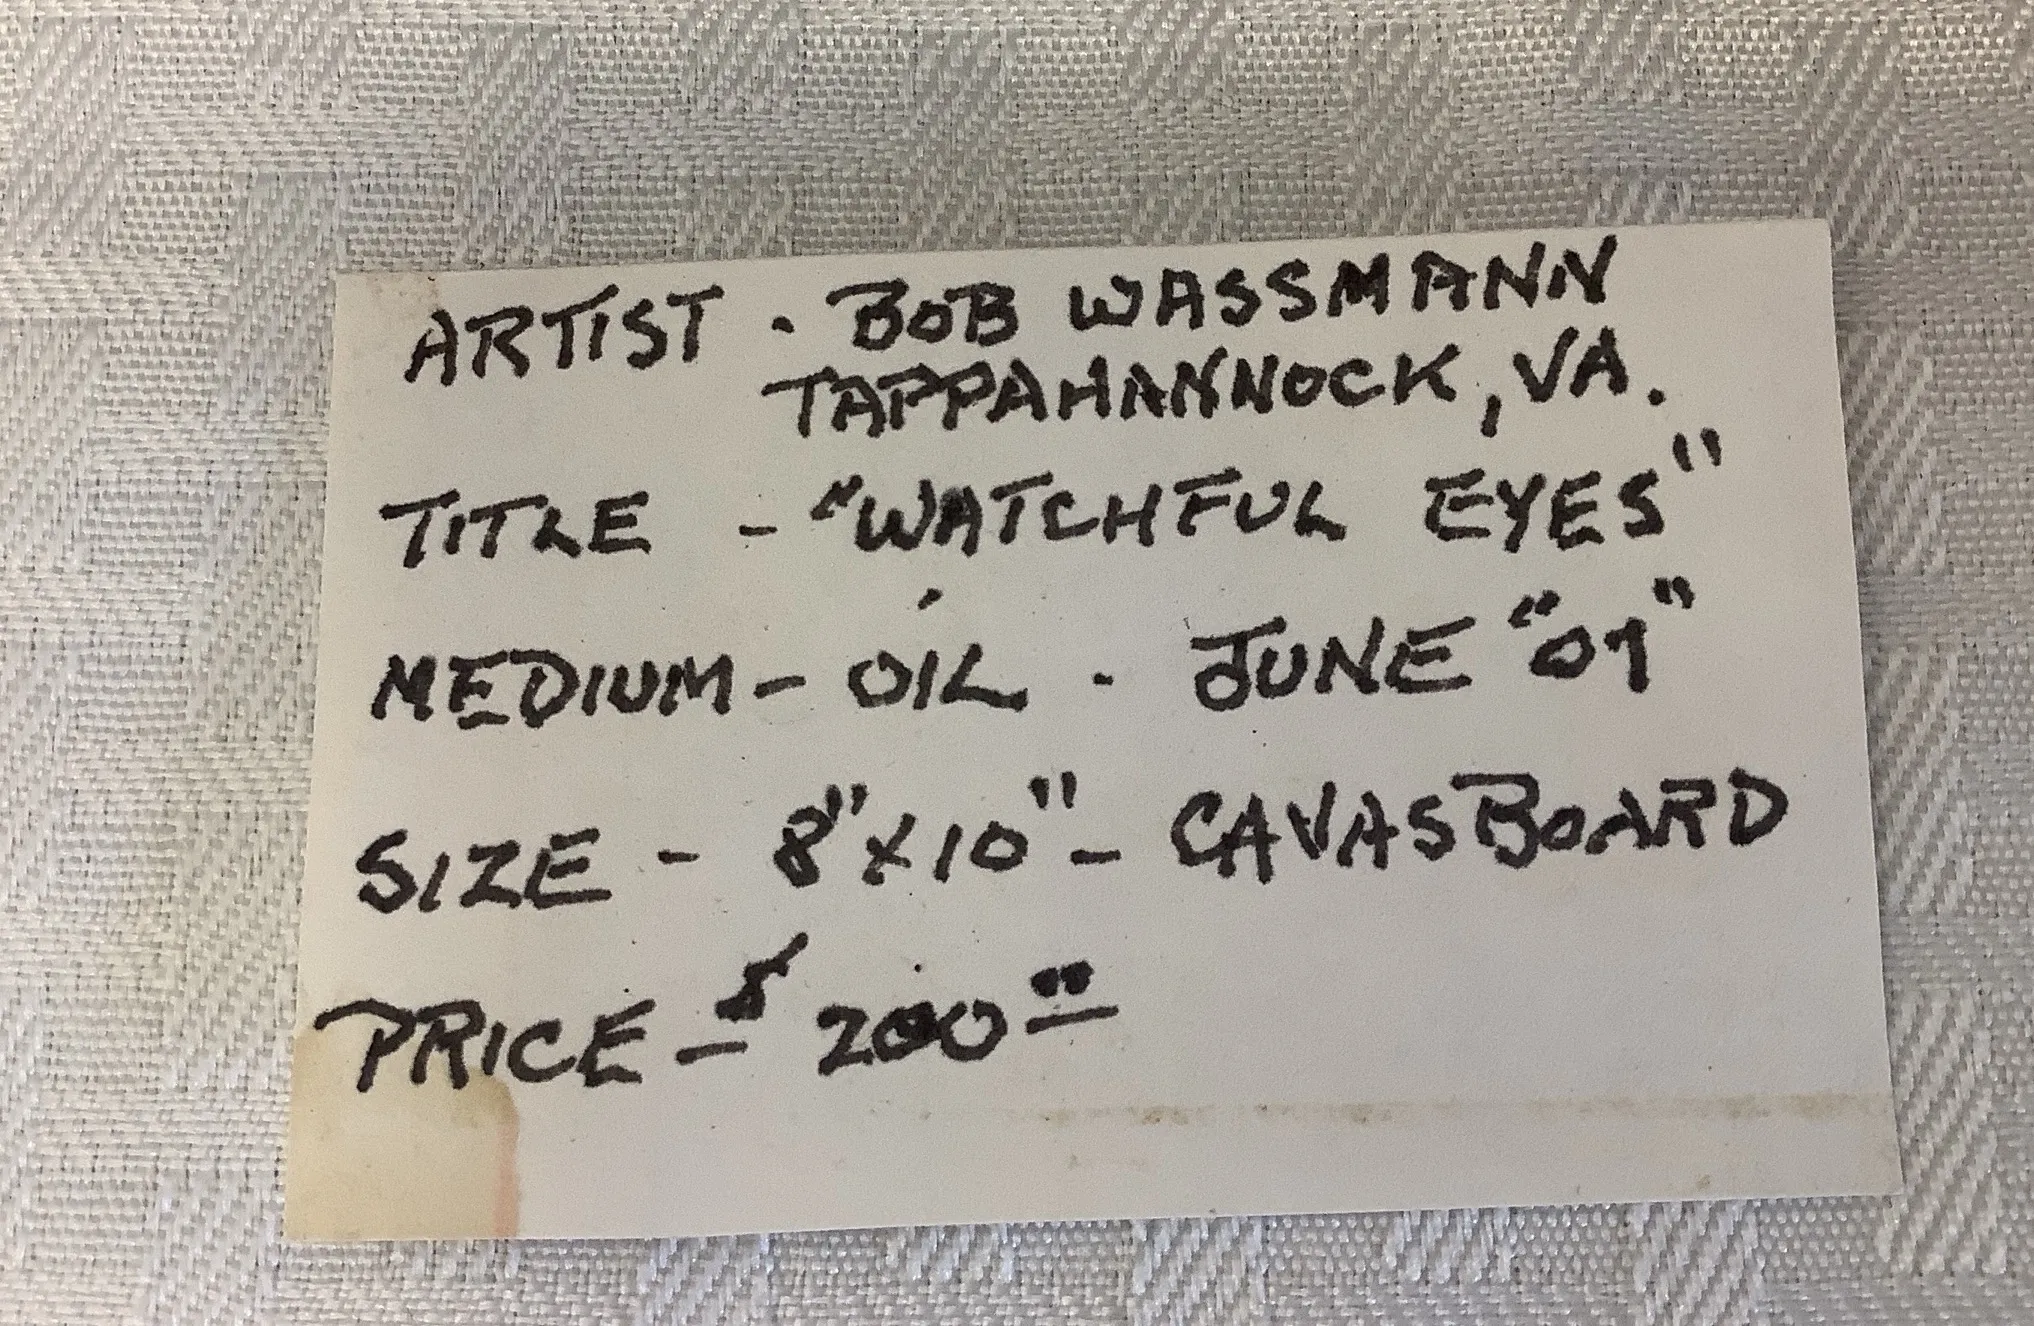 ARTIST · BOB WASSMANN
TAPPAHANNOCK, VA.
TITLE - "WATCHFUL EYES"
MEDIUM - OIL · JUNE "07"
SIZE - 8" x 10" - CAVASBOARD
PRICE - $ 200